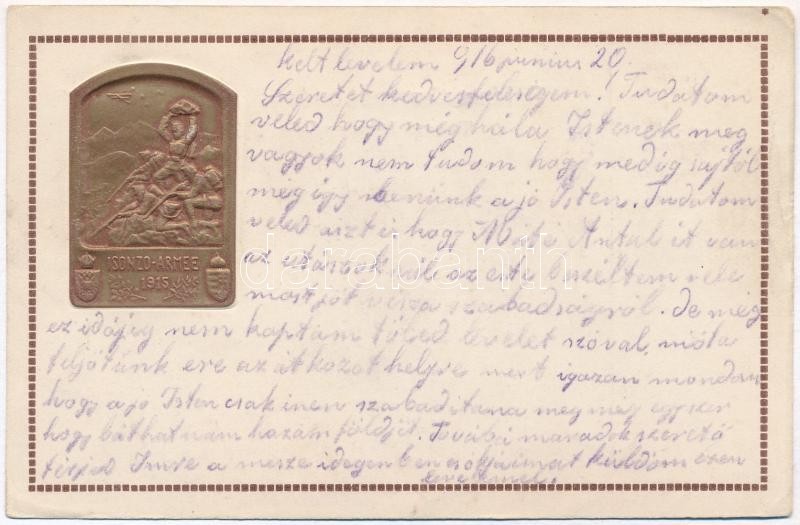 kelt levelem 916 junius 20.
Szeretet kedvesfeleségem! Tudatom
veled hogy még hála Istenek meg
vagyok nem tudom hogy medóg sajtól
még igy benünk a jó Isten. Tudatom
veled aszt is hogy Máté Antal it van
az utászok nál az este beszéltem vele
most jöt visza szabadságról. de még
ez idöjig nem kaptam töled levelet szóval, mióta
feljötünk ere az átkozot helyre mert igazan mondom
hogy a jo Isten csak inen szabaditana meg még egyszer
hogy láthatnám hazám földjét. Továbá maradok szeretö
férjed Imre a mesze idegenben csókjaimat küldöm ezen
levelemel.
ISONZO-ARMEE
1915
darabanth